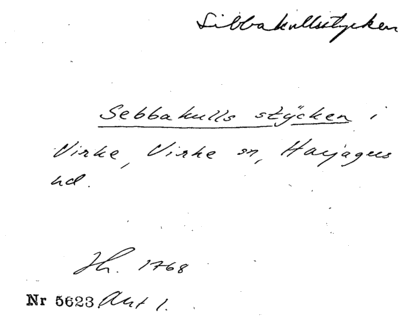 Sibbakullsstycken
Sebbakulls stÿcken i
Virke, Virke sn, Harjagers
hd.
Jh. 1768
Nr 5623 Akt 1.